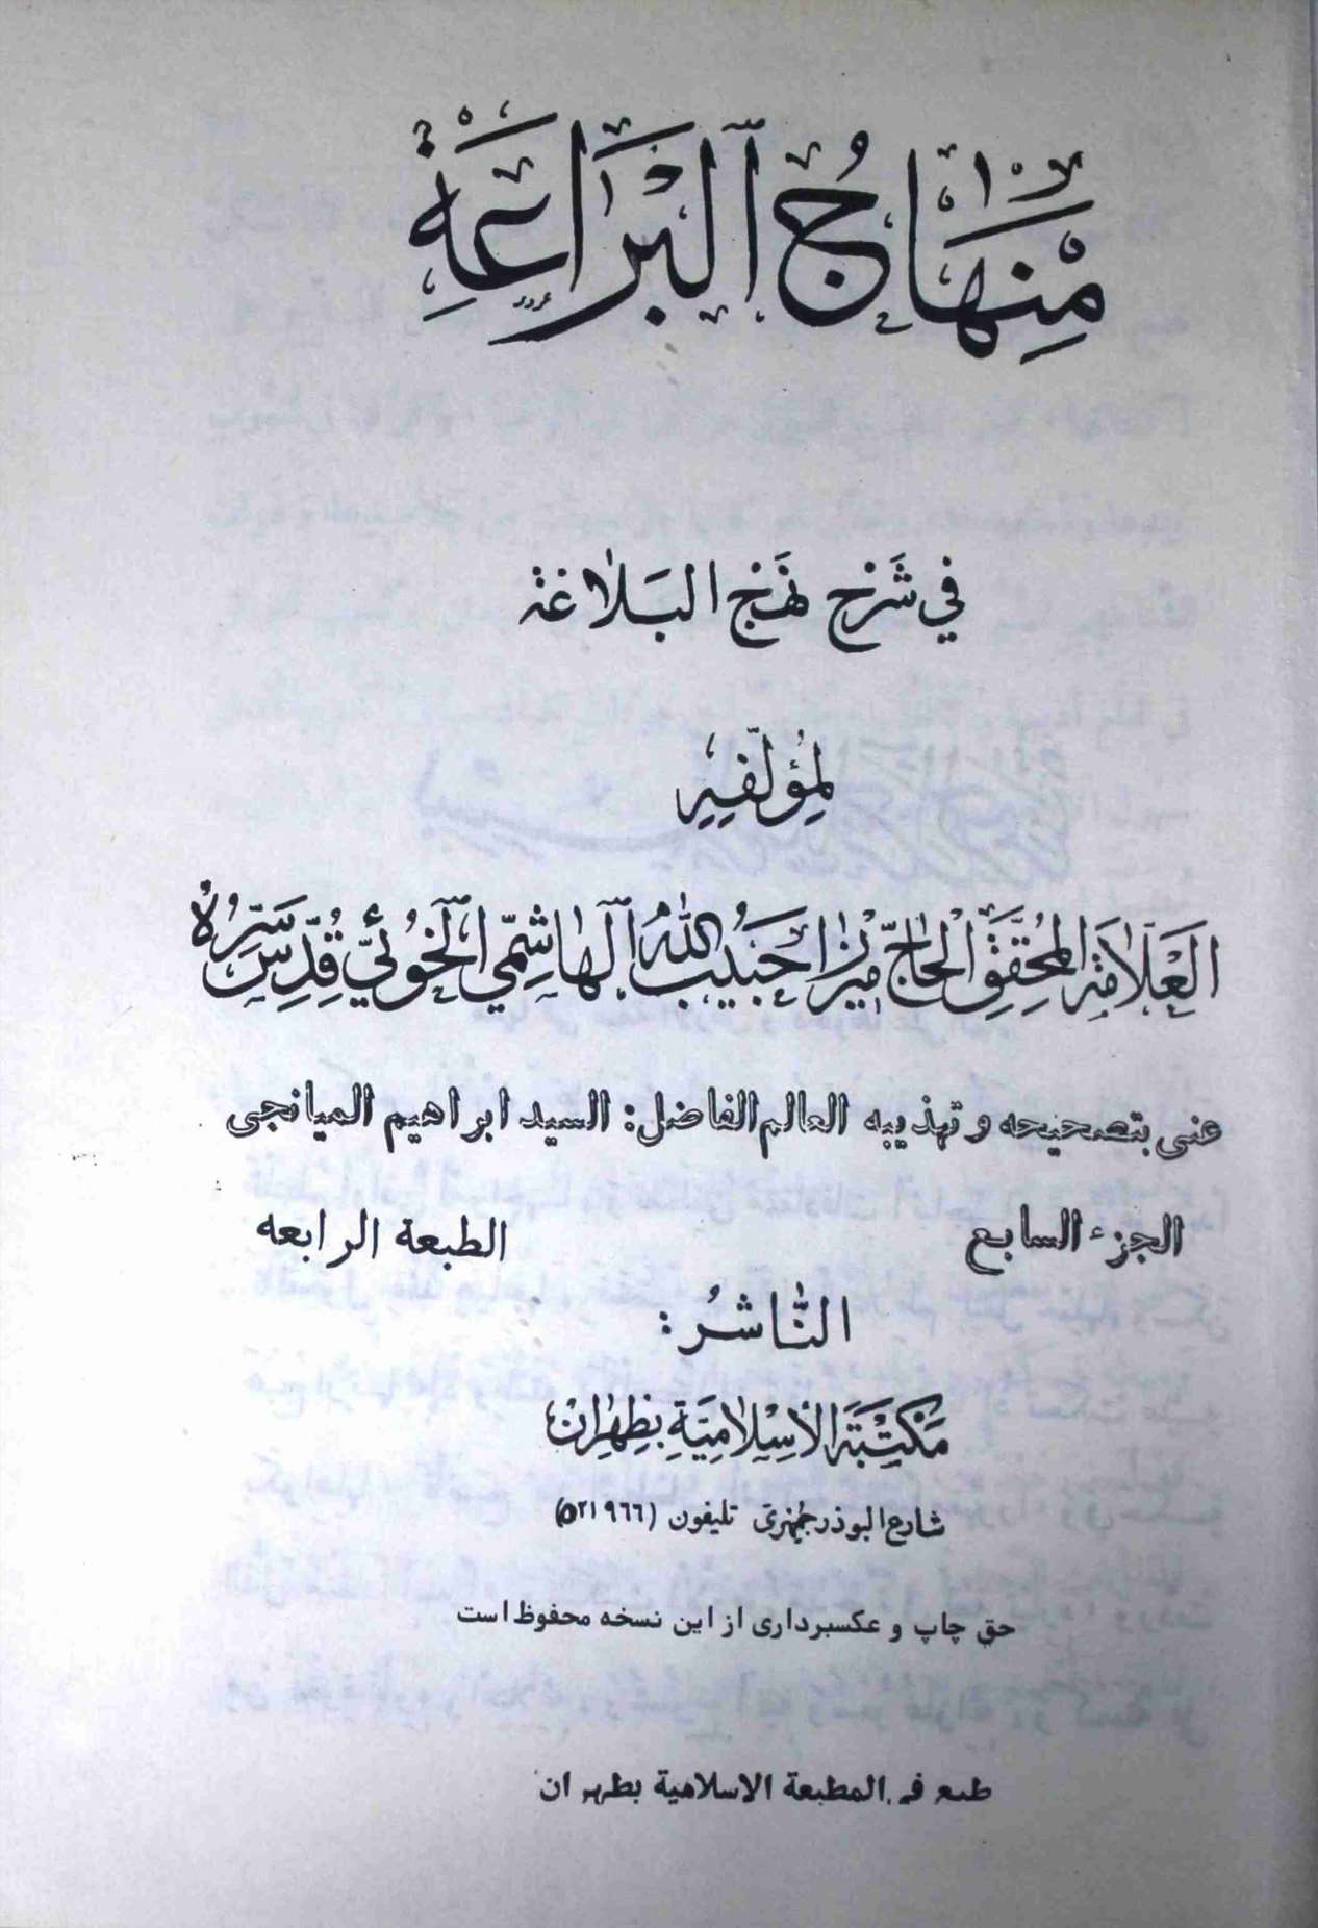 مِنْهَاجُ ٱلْبَرَاعَةِ
في شَرْحِ نَهْجِ البَلاغَة
لِمُؤَلِّفِهِ
العَلّامَة المُحَقِّقِ الحَاجّ مِيرزا حَبيبُ اللهُ الهَاشِمِي الخُوئِيّ قُدِّسَ سِرُّهُ
عنى بتصحيحه و تهذيبه العالم الفاضل: السيد ابراهيم الميانجى
الجزء السابع الطبعة الرابعه
النَّاشرُ:
مَكْتَبَة الاسِلامِيَّةِ بِطِهران
شارع البوذرجمهرى تليفون (٥٢١٩٦٦)
حق چاپ و عکسبرداری از این نسخه محفوظ است
طبع فى المطبعة الاسلامية بطهران